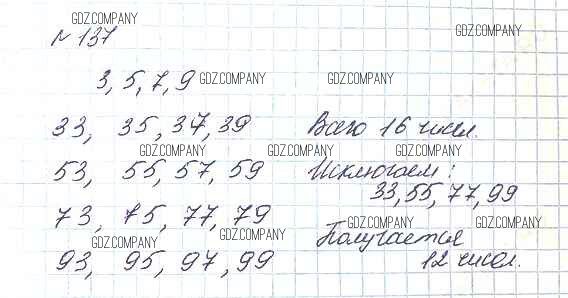 GDZ.COMPANY
№ 137
GDZ.COMPANY
3, 5, 7, 9 GDZ.COMPANY GDZ.COMPANY
33, 35, 37, 39 Всего 16 чисел.
GDZ.COMPANY GDZ.COMPANY GDZ.COMPANY
53, 55, 57, 59 Исключаем:
33, 55, 77, 99
73, 75, 77, 79 GDZ.COMPANY GDZ.COMPANY
GDZ.COMPANY GDZ.COMPANY Получается
93, 95, 97, 99 12 чисел.